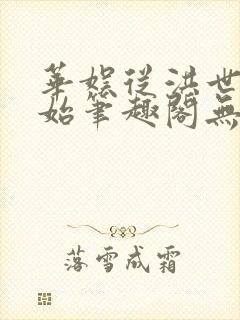 華娛從洪世
始筆趣閣無
落雪成霜